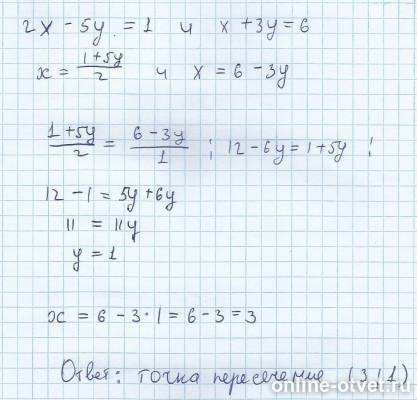 2x - 5y = 1 и x + 3y = 6
x = \frac{1+5y}{2} и x = 6 - 3y
\frac{1+5y}{2} = \frac{6-3y}{1} ; 12 - 6y = 1 + 5y ;
12 - 1 = 5y + 6y
11 = 11y
y = 1
x = 6 - 3 · 1 = 6 - 3 = 3
Ответ: точка пересечения (3;1)
online-otvet.ru